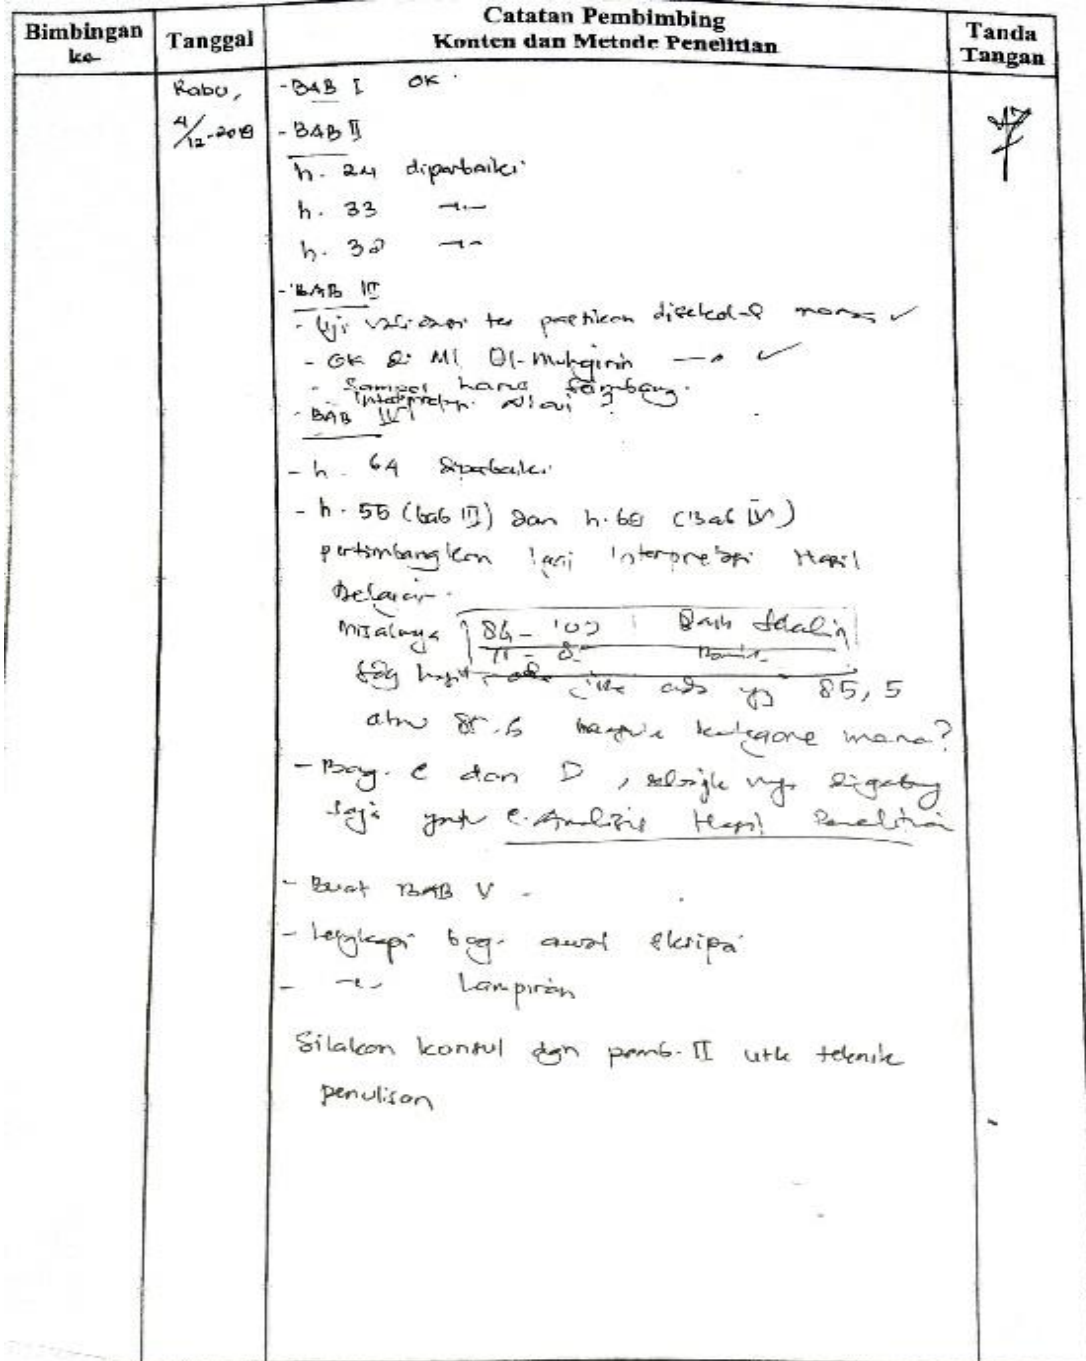 Bimbingan ke-
Tanggal
Catatan Pembimbing
Konten dan Metode Penelitian
Tanda Tangan
Rabu,
4/12-2019
- BAB I OK
- BAB II
h. 24 diperbaiki
h. 33
h. 38
- BAB III
- Uji validasi tes pastikan disekolah mana ✓
- OK di MI Al-Muhajirin ✓
- Sampel harus seimbang.
- BAB IV
- h. 64 diperbaiki
- h. 55 (bab III) dan h. 66 (Bab IV)
pertimbangkan lagi Interpretasi Hasil
Belajar.
Misalnya 86 - 100 Baik Sekali
71 - 85 Baik
jika ada yg 85,5
atau kategori mana?
- Bag. C dan D, digabung
saja C. Analisis Hasil Penelitian
- Buat BAB V
- Lengkapi bag. awal skripsi
- Lampiran
Silakan konsul dgn pemb. II utk teknik
penulisan